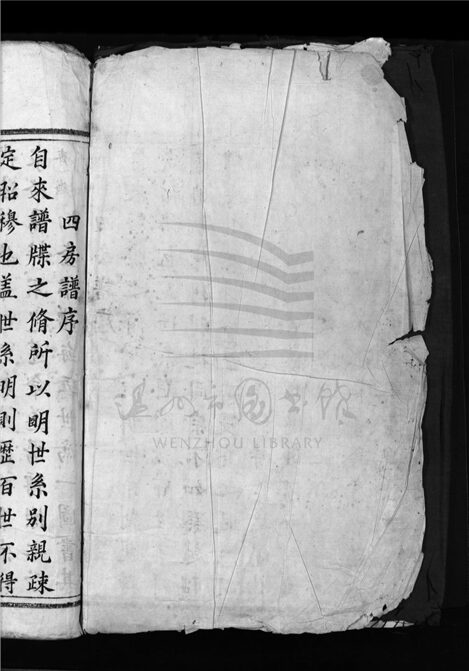 四房譜序
自來譜牒之脩所以明世系別親疎
定昭穆也盖世系明則歷百世不得
温州市図书馆
WENZHOU LIBRARY